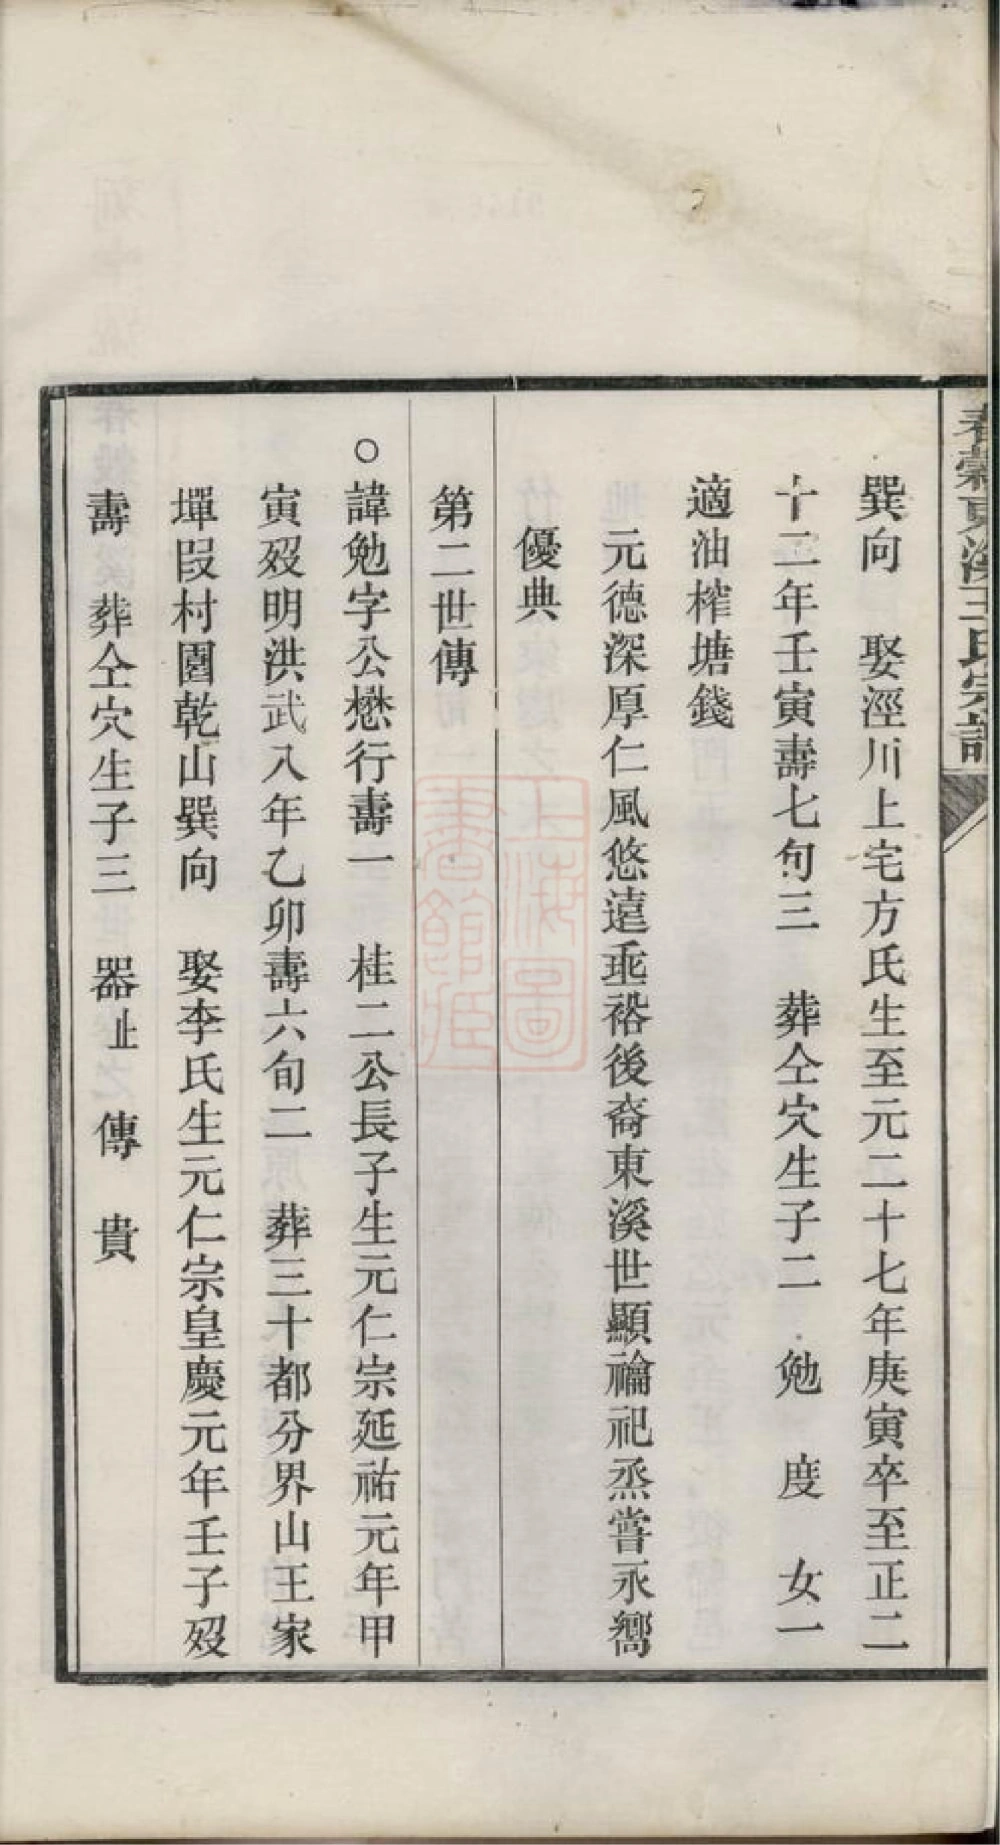 春穀東溪王氏宗譜
巽向　娶涇川上宅方氏生至元二十七年庚寅卒至正二
十二年壬寅壽七旬三　葬仝穴生子二　勉　度　女一
適油榨塘錢
元德深厚仁風悠遠垂裕後裔東溪世顯禴祀烝嘗永嚮
優典
第二世傳
○諱勉字公懋行壽一　桂二公長子生元仁宗延祐元年甲
寅歿明洪武八年乙卯壽六旬二　葬三十都分界山王家
墠段村園乾山巽向　娶李氏生元仁宗皇慶元年壬子歿
壽　葬仝穴生子三　器止　傳　貴
上海圖書館藏